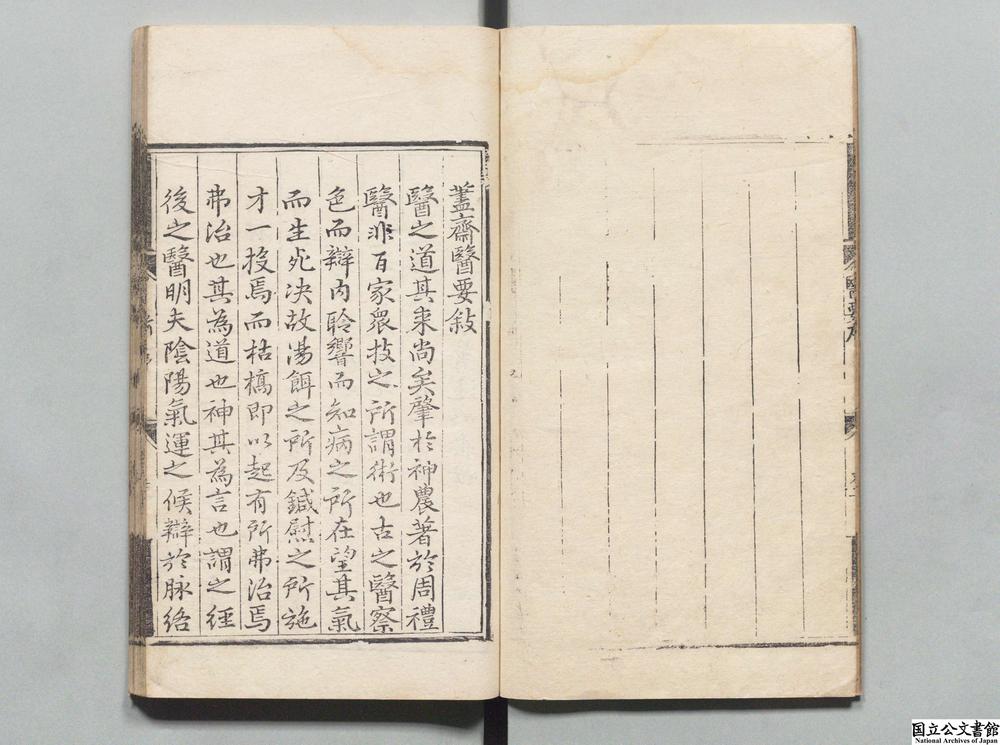 藎齋醫要敍
醫之道其来尚矣肇扵神農著扵周禮
醫非百家衆技之所謂術也古之醫察
色而辯内聆響而知病之所在望其氣
而生死决故湯餌之所及鍼熨之所施
才一投焉而枯槁即以起有所弗治焉
弗治也其為道也神其為言也謂之經
後之醫明夫陰陽氣運之候辯扵脉絡
醫要序
国立公文書館
National Archives of Japan